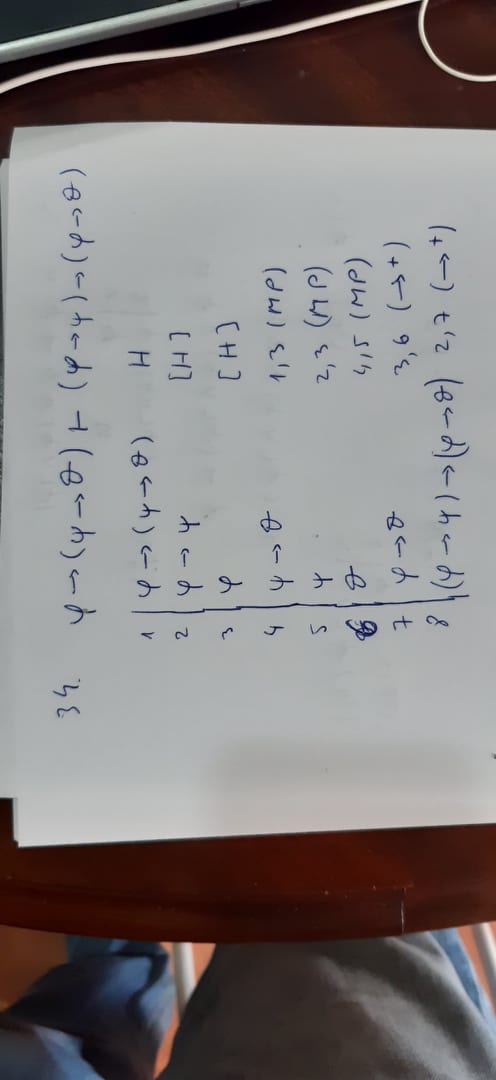 34. φ → (ψ → θ) ⊢ (φ → ψ) → (φ → θ)
1 φ → (ψ → θ) H
2 φ → ψ [H]
3 φ [H]
4 ψ → θ 1,3 (MP)
5 ψ 2,3 (MP)
6 θ 4,5 (MP)
7 φ → θ 3,6 (→+)
8 (φ → ψ) → (φ → θ) 2,7 (→+)